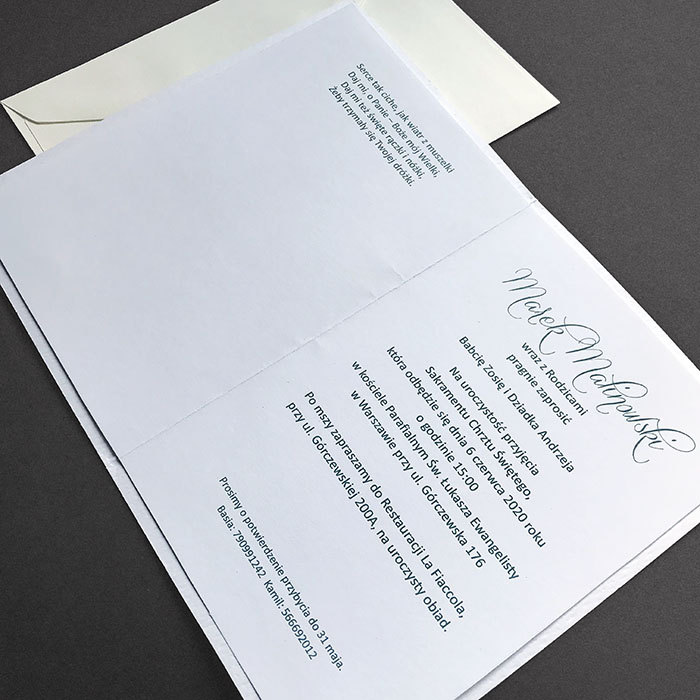 Serce tak ciche, jak wiatr z muszelki
Daj mi, o Panie – Boże mój Wielki,
Daj mi też święte rączki i nóżki,
Żeby trzymały się Twojej dróżki.
Marek Malinowski
wraz z Rodzicami
pragnie zaprosić
Babcię Zosię i Dziadka Andrzeja
Na uroczystość przyjęcia
Sakramentu Chrztu Świętego,
która odbędzie się dnia 6 czerwca 2020 roku
o godzinie 15:00
w kościele Parafialnym Św. Łukasza Ewangelisty
w Warszawie przy ul. Górczewska 176
Po mszy zapraszamy do Restauracji La Fiaccola,
przy ul. Górczewskiej 200A, na uroczysty obiad.
Prosimy o potwierdzenie przybycia do 31 maja.
Basia: 790991242 Kamil: 566692012